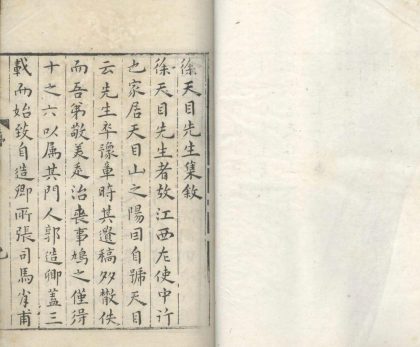 徐天目先生集敘
徐天目先生者故江西左使中行
也家居天目山之陽因自號天目
云先生卒豫章時其遺稿多散佚
而吾弟敬美走治喪事鳩之僅得
十之六以属其門人郭造卿蓋三
載而始致自造卿所張司馬肖甫